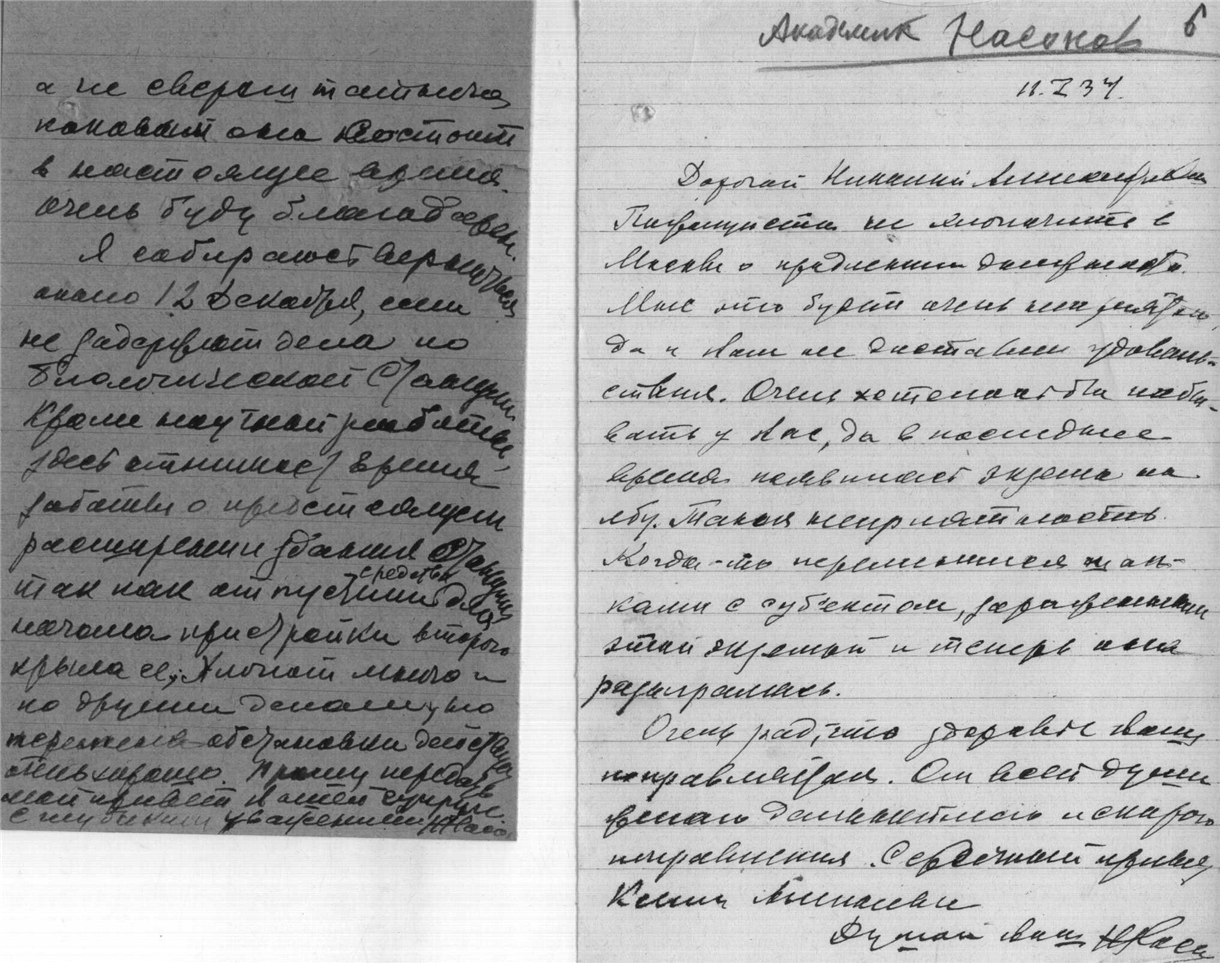 а не сверш
каковом она состоит
в настоящее время.
очень буду благодарен.
Я собираюсь вернуться
около 12 Декабря, если
не задержат дела по
биологической Станции
Кроме научной работы,
здесь отнимают время
заботы о предстоящем
расширении здания Станции
так как отпустили средства для
начала пристройки второго
крыла ее. Хлопот много и
по другим делам, но
перемена обстановки действует
очень хорошо. Прошу передать
мой привет Вашей супруге.
С глубоким уважением ННасо
Академик Насонов 6
11.I 34.
Дорогой
Пожалуйста не хлопочите в
Москве о продлении
Мне это будет очень неприятно,
да и Вам не доставит удоволь-
ствия. Очень хотелось бы побы-
вать у Вас, да в последнее
время появилась экзема на
лбу. Такая неприятность.
Когда-то переменился шап-
ками с субъектом, зараженным
этой экземой и теперь она
разыгралась.
Очень рад, что здоровье Ваше
поправляется. От всей души
желаю дальнейшего и скорого
поправления. Сердечный привет
Ксении
Душой Ваш ННасо